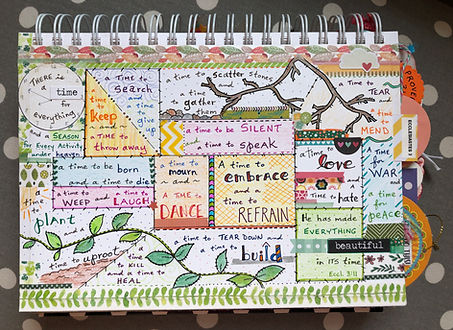 THERE is
a time
for
everything
and a
SEASON
for Every Activity
under
heaven
a TIME to
search
and
a time
to give
up
time
to
keep
and
a TIME to
throw away
a time to
SCATTER stones
and
a time to
gather
them
a Time to
TEAR
and
a time
to
MEND
a time to be SILENT
and a
time to speak
a time to be born
and a time to die
a time to
WEEP and LAUGH
a time to
mourn
and
a TIME to
DANCE
a time to
embrace
and a
time to
REFRAIN
a Time to
love
and
a Time to
hate
a
Time
for
WAR
and a
time
for
peace
a time to
plant
and
a time to uproot
a time to
KILL
and a time to
HEAL
a time to TEAR DOWN and
a time to
build
He has made
EVERYTHING
beautiful
in ITS time
Eccl. 3:11
PROVERBS
ECCLESIASTES